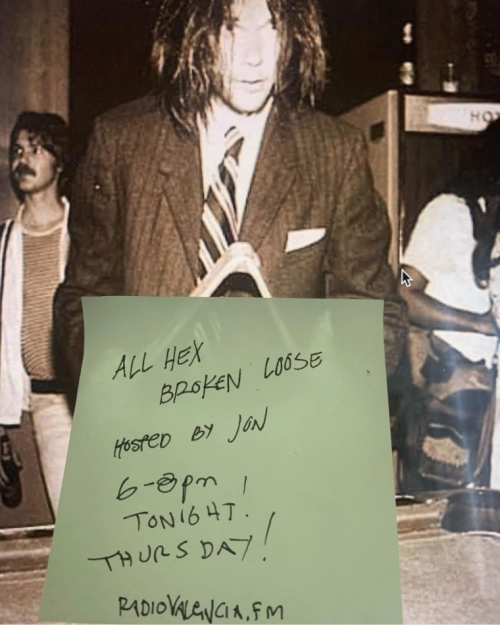 HO
ALL HEX
BROKEN LOOSE
HOSTED BY JON
6-8pm!
TONIGHT.
THURSDAY!
RADIOVALENCIA.FM